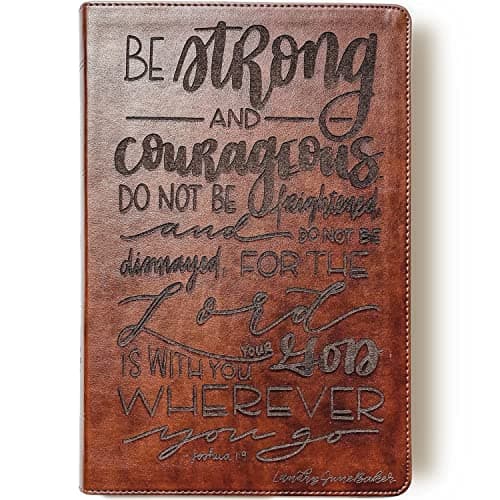 BE strong
AND
courageous.
DO NOT BE frightened,
and DO NOT BE
dismayed, FOR THE
Lord
YOUR GOD
IS WITH YOU
WHEREVER
you go
- Joshua 1:9